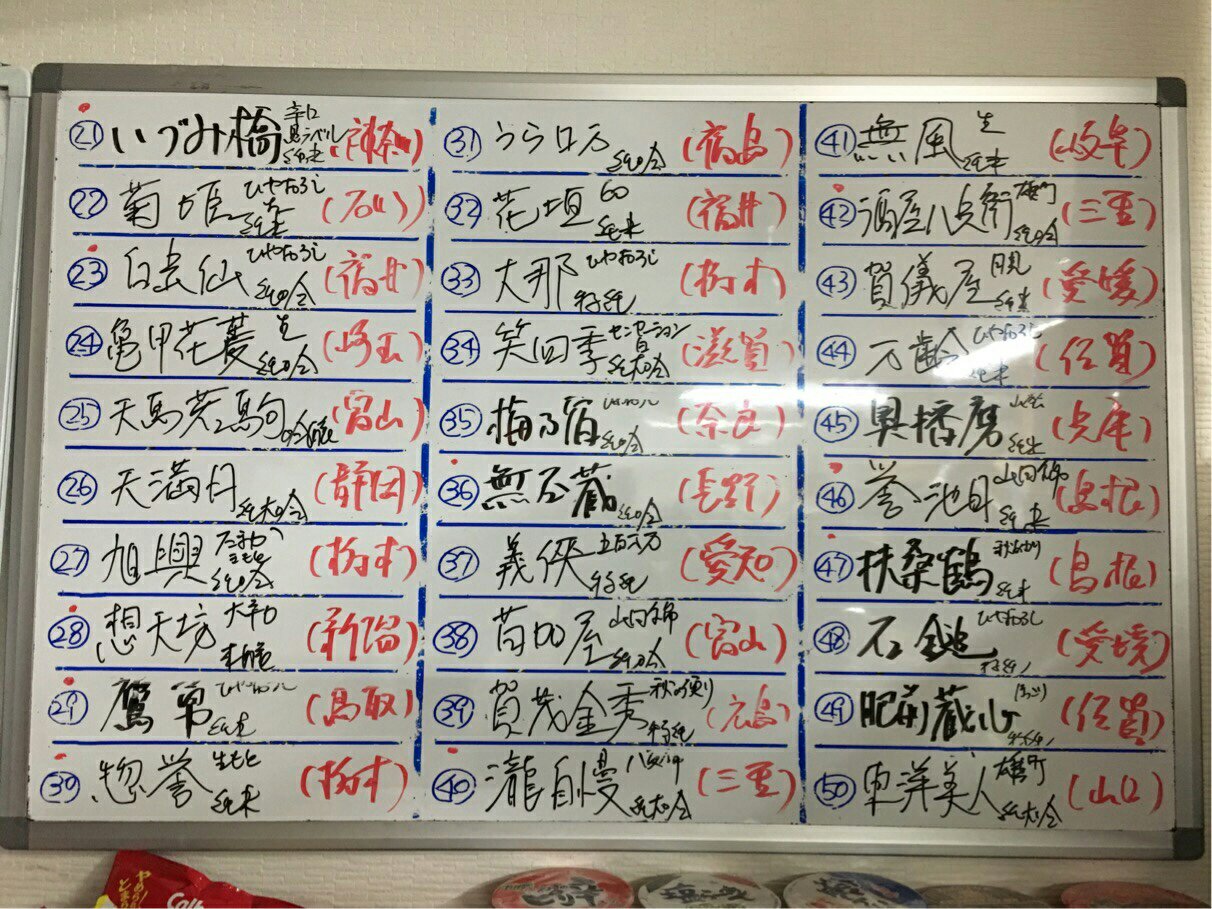 ㉑ いづみ橋 辛口 黒ラベル 純米 (神奈川)
㉒ 菊姫 ひやおろし 純米 (石川)
㉓ 白岳仙 ひやおろし 純吟 (福井)
㉔ 亀甲花菱 生 純吟 (埼玉)
㉕ 天馬荒駒 吟醸 (富山)
㉖ 天満月 純大吟 (静岡)
㉗ 旭興 生もと 純吟 (栃木)
㉘ 想天坊 大辛口 本醸 (新潟)
㉙ 鷹勇 ひやおろし 純米 (鳥取)
㉚ 惣誉 生もと 純米 (栃木)
㉛ うらロ万 純吟 (福島)
㉜ 花垣 60 純米 (福井)
㉝ 大那 ひやおろし 特純 (栃木)
㉞ 笑四季 センセーション 純大吟 (滋賀)
㉟ 梅乃宿 純吟 (奈良)
㊱ 無石蔵 純吟 (長野)
㊲ 義侠 五百万 特純 (愛知)
㊳ 苗加屋 山田錦 純吟 (富山)
㊴ 賀茂金秀 秋の便り 特純 (広島)
㊵ 瀧自慢 純大吟 (三重)
㊶ 無風 生 純米 (岐阜)
㊷ 酒屋八兵衛 雄町 純吟 (三重)
㊸ 賀儀屋 月見 純米 (愛媛)
㊹ 万齢 ひやおろし 純米 (佐賀)
㊺ 奥播磨 山廃 純米 (兵庫)
㊻ 誉池月 山田錦 純米 (島根)
㊼ 扶桑鶴 秋あがり 純米 (島根)
㊽ 石鎚 ひやおろし 特純 (愛媛)
㊾ 肥前蔵心 特純 (佐賀)
㊿ 東洋美人 雄町 純大吟 (山口)